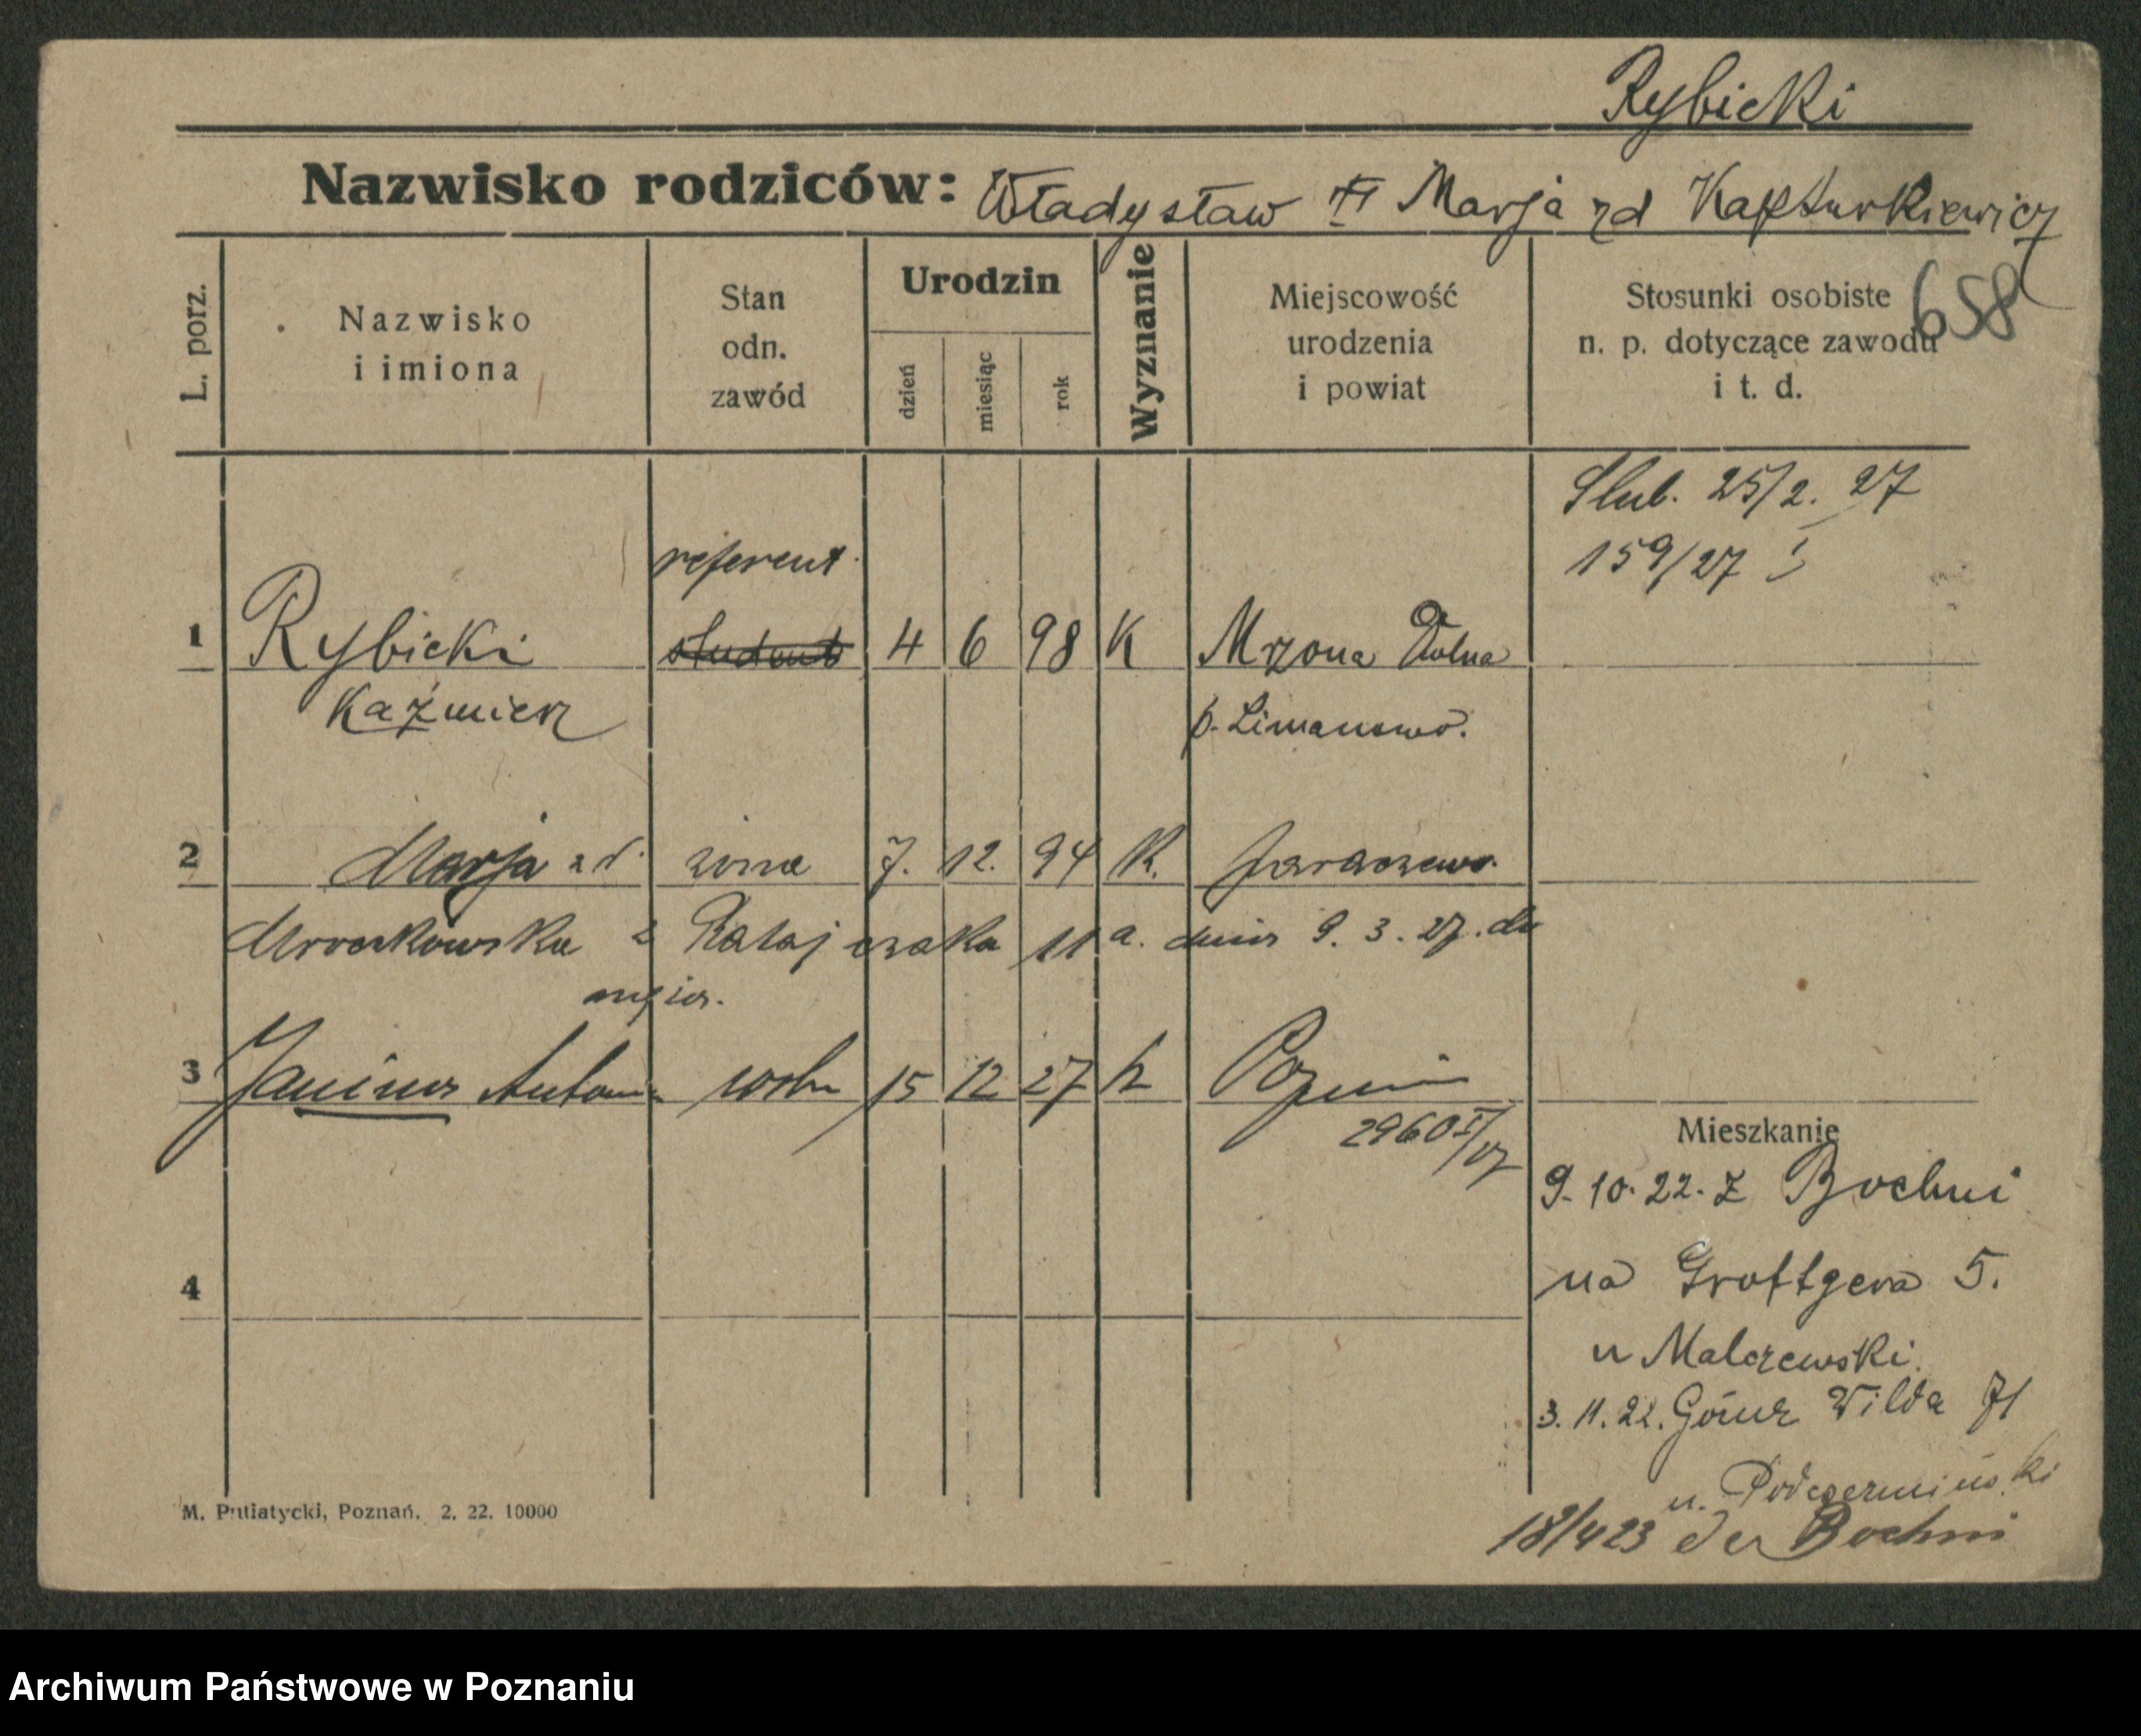 Rybicki
Nazwisko rodziców: Władysław Marja zd Kapturkiewicz
658
L. porz.
Nazwisko i imiona
Stan odn. zawód
Urodzin
dzień
miesiąc
rok
Wyznanie
Miejscowość urodzenia i powiat
Stosunki osobiste n. p. dotyczące zawodu i t. d.
Slub. 25/2. 27
159/27
referent
1 Rybicki student 4 6 98 K Mrzona Dolna
Kaźmierz p. Limanowa.
2 Marja zd. żona 7. 12. 94 K. Jaraczewo.
Mroczkowska z Ratajczaka 11a. dnia 9. 3. 27. do
męża.
3 Janina 15 12 27 k Poznań
2960 I/27
Mieszkanie
9. 10. 22. z Bochni
na Grottgera 5.
u Malczewski.
4
3. 11. 22. Górna Wilda 71
u.
18/4 23 do Bochni
M. Putiatycki, Poznań. 2. 22. 10000
Archiwum Państwowe w Poznaniu